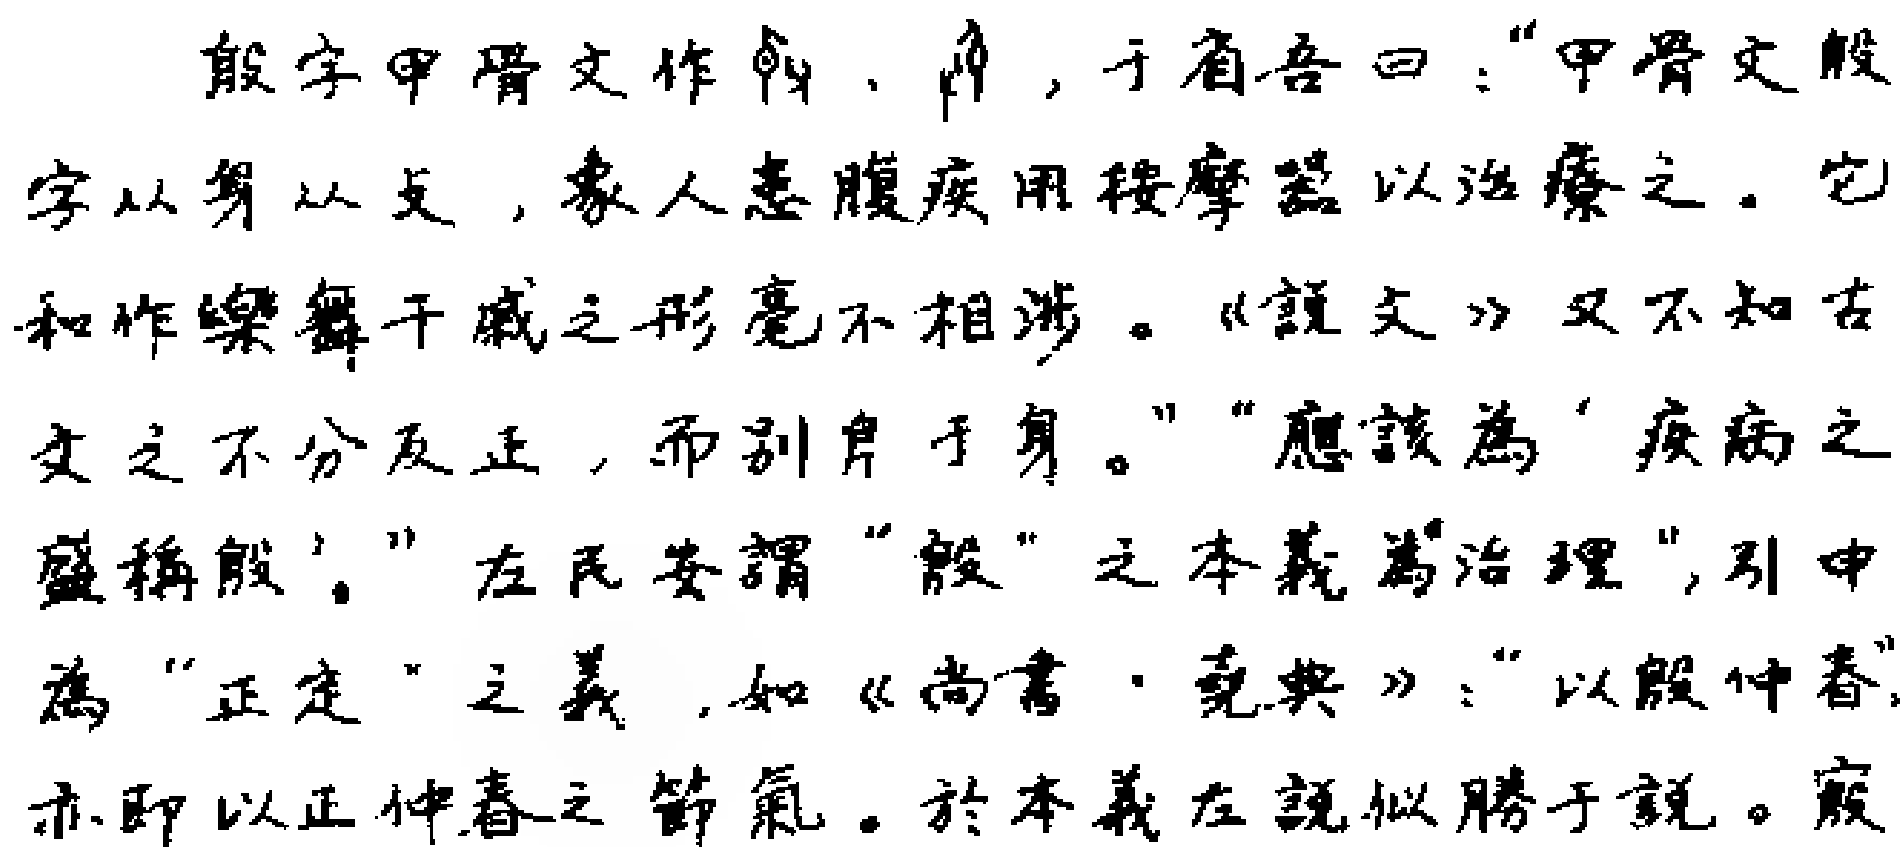 殷字甲骨文作、，于省吾曰：“甲骨文殷
字从身从攴，象人患腹疾用按摩器以治療之。它
和作樂舞干戚之形毫不相涉。《說文》又不知古
文之不分反正，而別㐆于身。”“應該為‘疾病之
盛稱殷’。”左民安謂“殷”之本義為“治理”，引申
為“正定”之義，如《尚書·堯典》：“以殷仲春”，
亦即以正仲春之節氣。於本義左說似勝于說。㱿